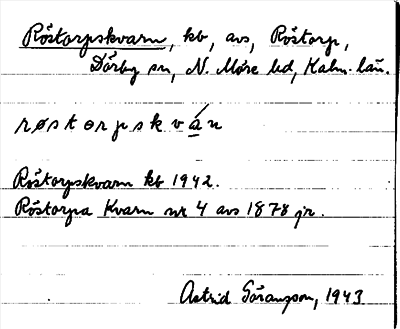 Röstorpskvarn, kb, avs, Röstorp,
Dörby sn, N. Möre hd, Kalm. län.
røstorpskván
Röstorpskvarn kb 1942.
Röstorpa Kvarn nr 4 avs 1878 jr.
Astrid Göransson, 1943